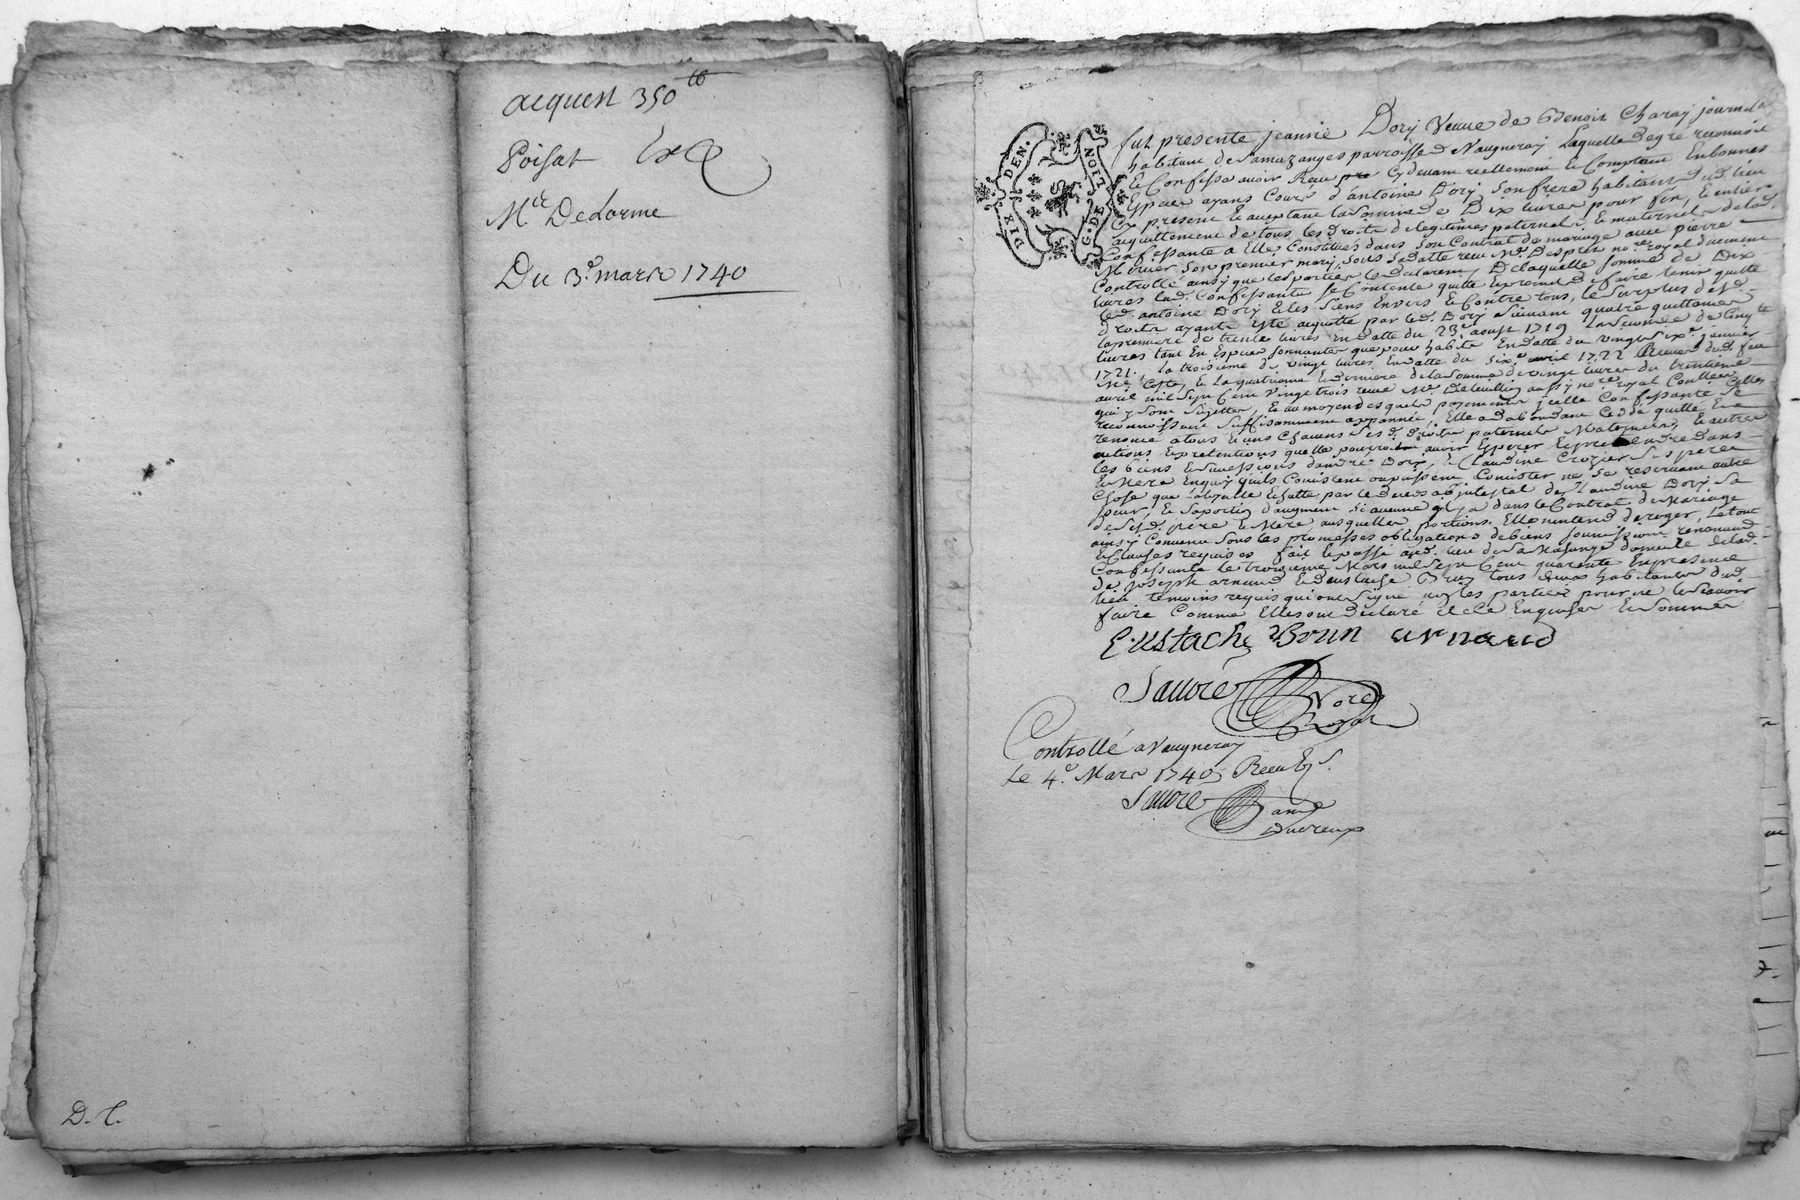 acquest 350ᵗᵗ
Poisat
Mᵉ Delorme
Du 3.ᵉ mars 1740
D. C.
DIX DEN.
G. DE LION
fut presente jeanne Dorÿ Veuve de Benoit Charaÿ journal.
habitant de Samazanges parroisse de Vaugneraÿ Laquelle degré reconnoit
et Confesse avoir Receu cy devant reellement et Comptant En bonnes
Especes ayans Cours d'antoine Dorÿ son frere habitant dud. lieu
Cy present et acceptant la somme de Dix livres pour fin, et entier
acquittement de tous les droits de legitimes paternels et maternels de lad.
Confessante a Elle Constitués dans son Contrat de mariage avec pierre
Mercier son premier mary, sous sa datte receu Mᵉ Desprez noʳᵉ royal duement
Controllé ainsÿ que les parties le declarent, De laquelle somme de Dix
livres lad. Confessante se Contente quitte et promet de faire tenir quitte
led. antoine Dorÿ et les siens Envers et Contre tous, le surplus desd.
droits ayants esté acquitté par led. Dorÿ suivant quatre quittances
la premiere de trente livres En datte du 23ᵉ aoust 1719 la seconde de Cinqᵗᵉ
livres tant En Especes sonnantes que pour habits En datte du vingt six.ᵉ janvier
1721, la troisieme de vingt livres En datte du six.ᵉ avril 1722 Receues dud. feu
Mᵉ Coste, et La quatrieme et derniere de la somme de vingt livres du trentieme
avril mil sept Cent vingt trois receue Mᵉ aussÿ noʳᵉ royal Controllées
qui y sont sujettes, et au moyen desquels payements icelle Confessante se
reconnoissant suffisamment appannée, Elle a d'abondant Cedé quitté et
renoncé a tous et uns Chacuns sesd. droits paternels Maternels, et autres
actions Et pretentions quelle pourroit avoir Esperer Et pretendre dans
les biens et successions d'andré Dorÿ, et Claudine Crozier ses pere
et Mere En quoy quils Consistent ou puissent Consister ne se reservant autre
Chose que Escheutte par le deceds ab intestat de Claudine Dorÿ sa
soeur, et sa portion d'augment si aucune il y a dans le Contrat de Mariage
de sesd. pere et Mere, ausquelles portions Elle n'entend deroger, Le tout
ainsÿ Convenu sous les promesses obligations de biens soumissions renonciaõns
et Clauses requises fait et passé aud. lieu de Samasange domicile de lad.
Confessante le troisieme Mars mil sept Cent quarente En presence
de joseph arnaud et d'eustache Brun tous deux habitants dud.
lieu temoins requis qui ont signé non les parties pour ne le sçavoir
faire Comme Elles ont Declaré de Ce Enquises et sommées
Eustache Brun arnaud
Sauvré Noʳᵉ
Royal
Controllé a Vaugneray
Le 4.ᵉ Mars 1740 Receu S.
Sauvré